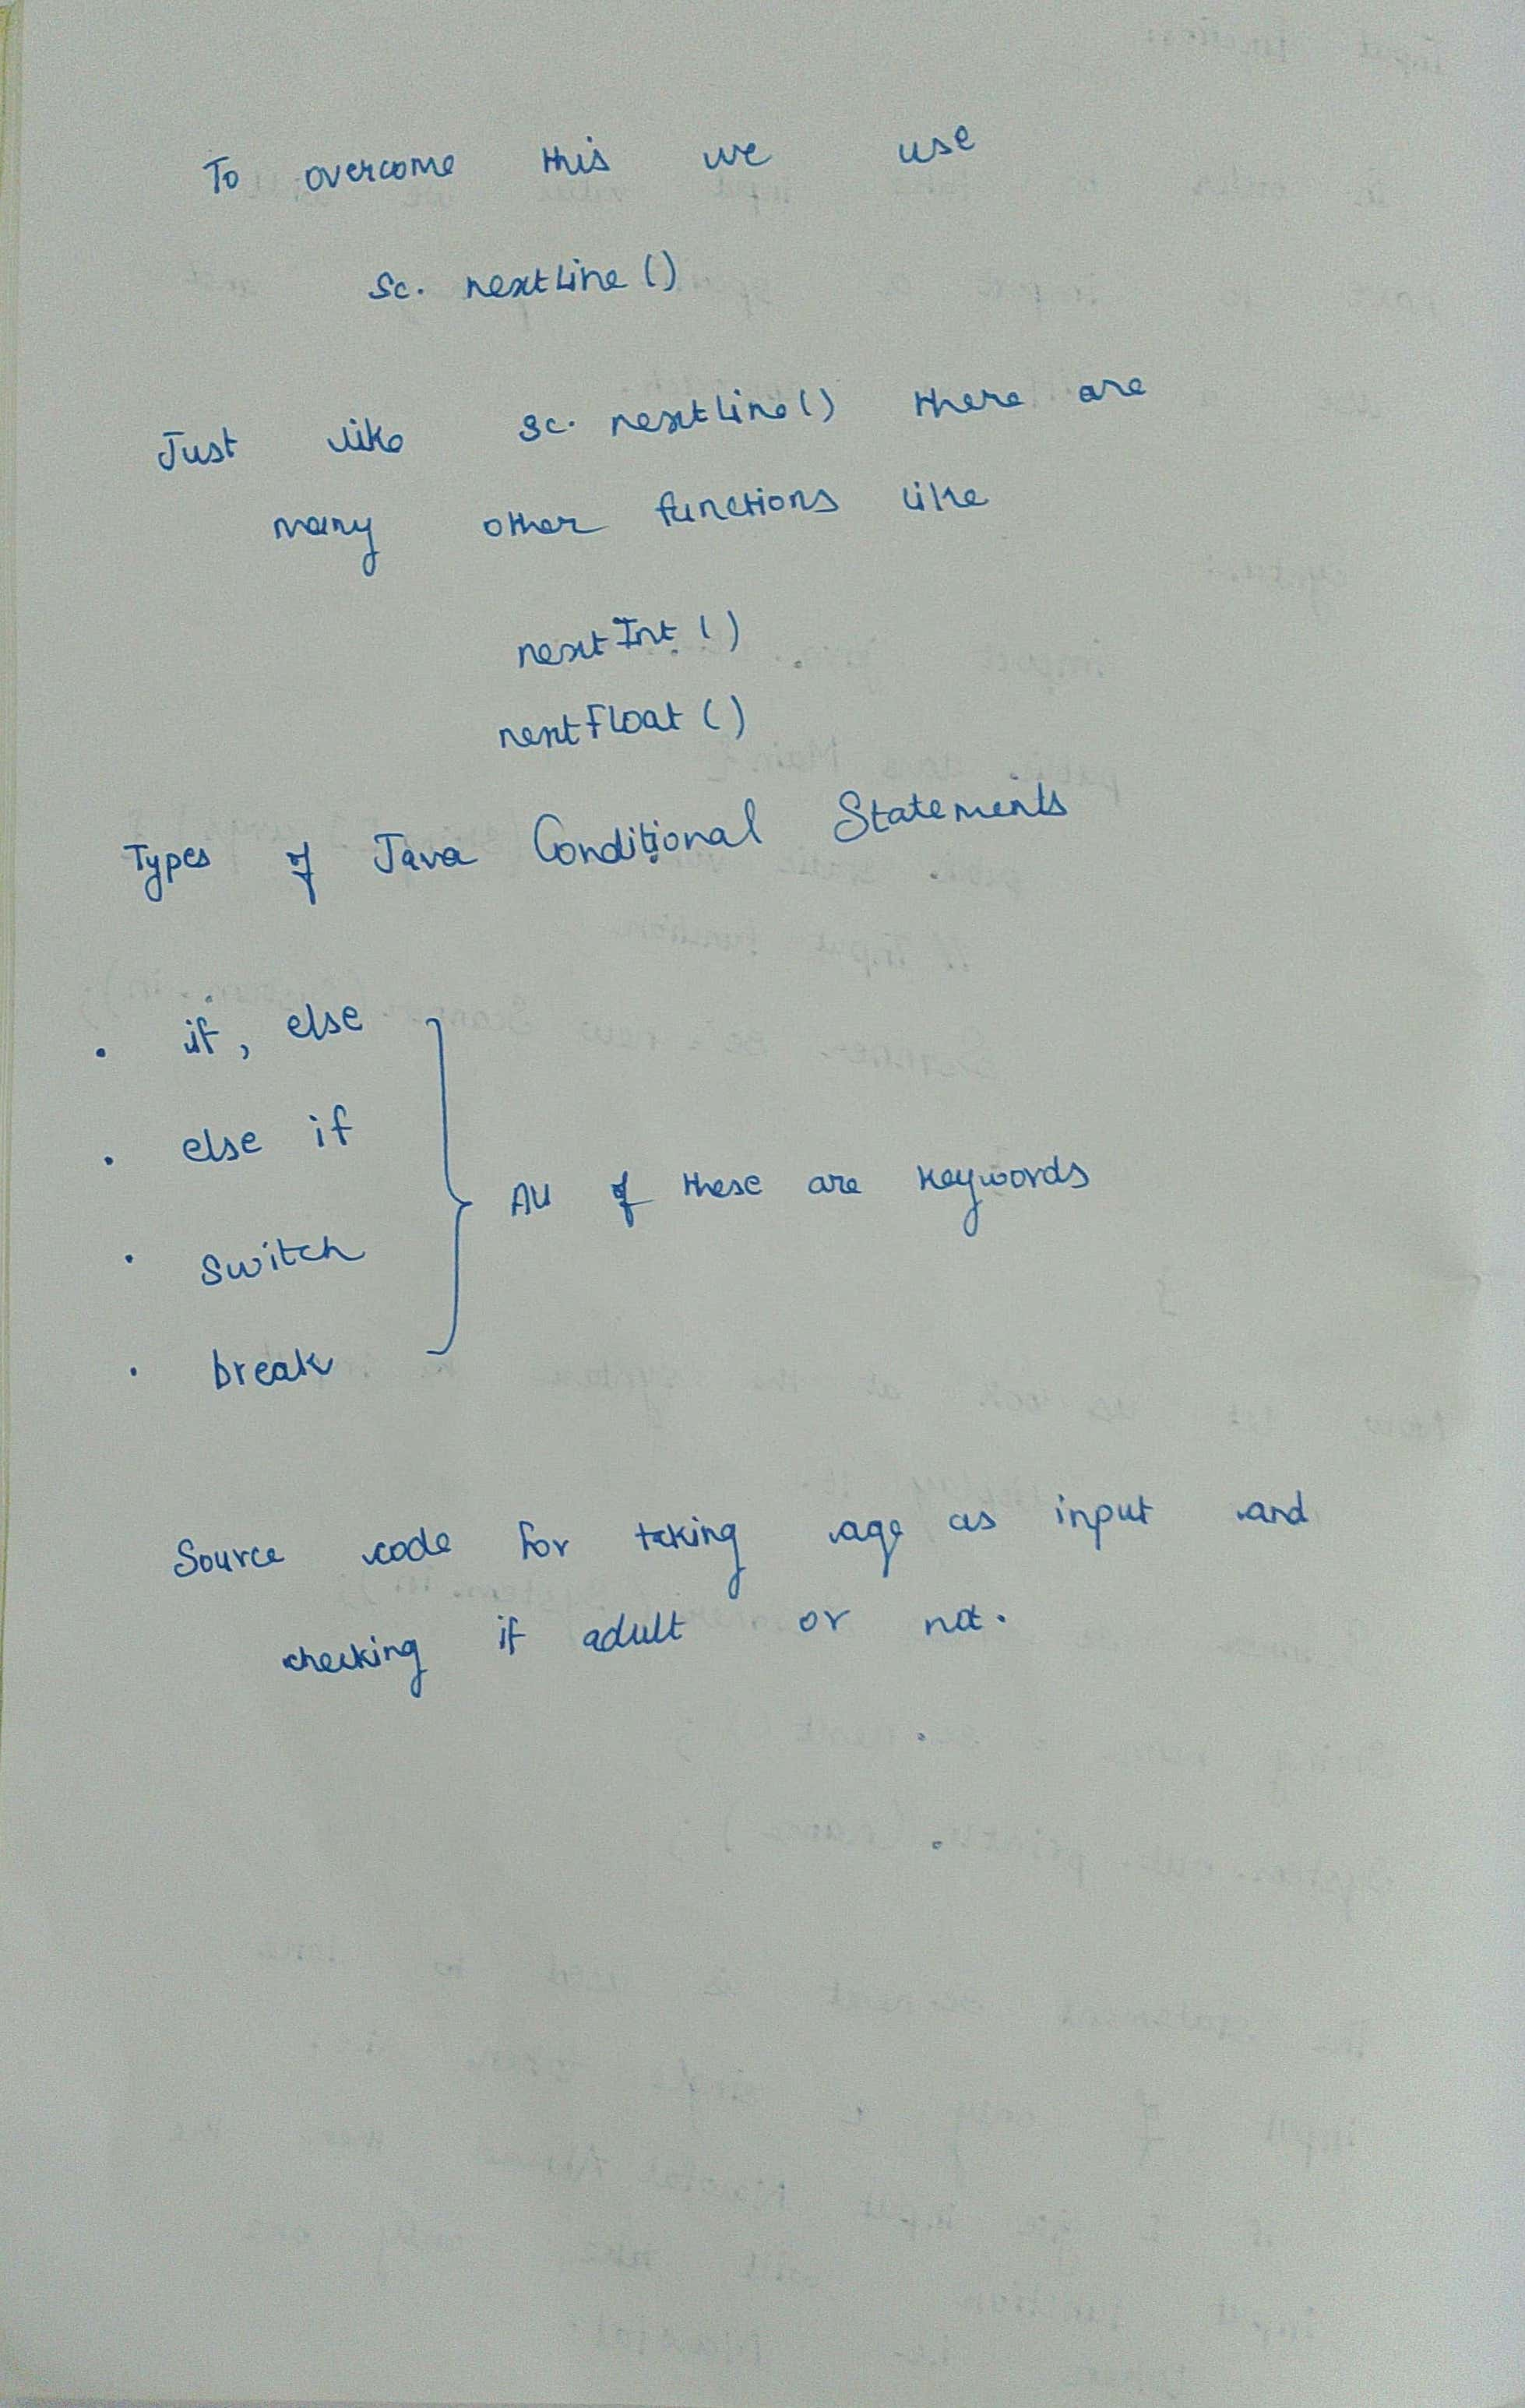 To overcome this we use
sc. nextLine ()
Just like sc. nextLine() there are
many other functions like
nextInt ()
nextFloat ()
Types of Java Conditional Statements
• if, else
• else if
• switch
• break
All of these are keywords
Source code for taking age as input and
checking if adult or not.